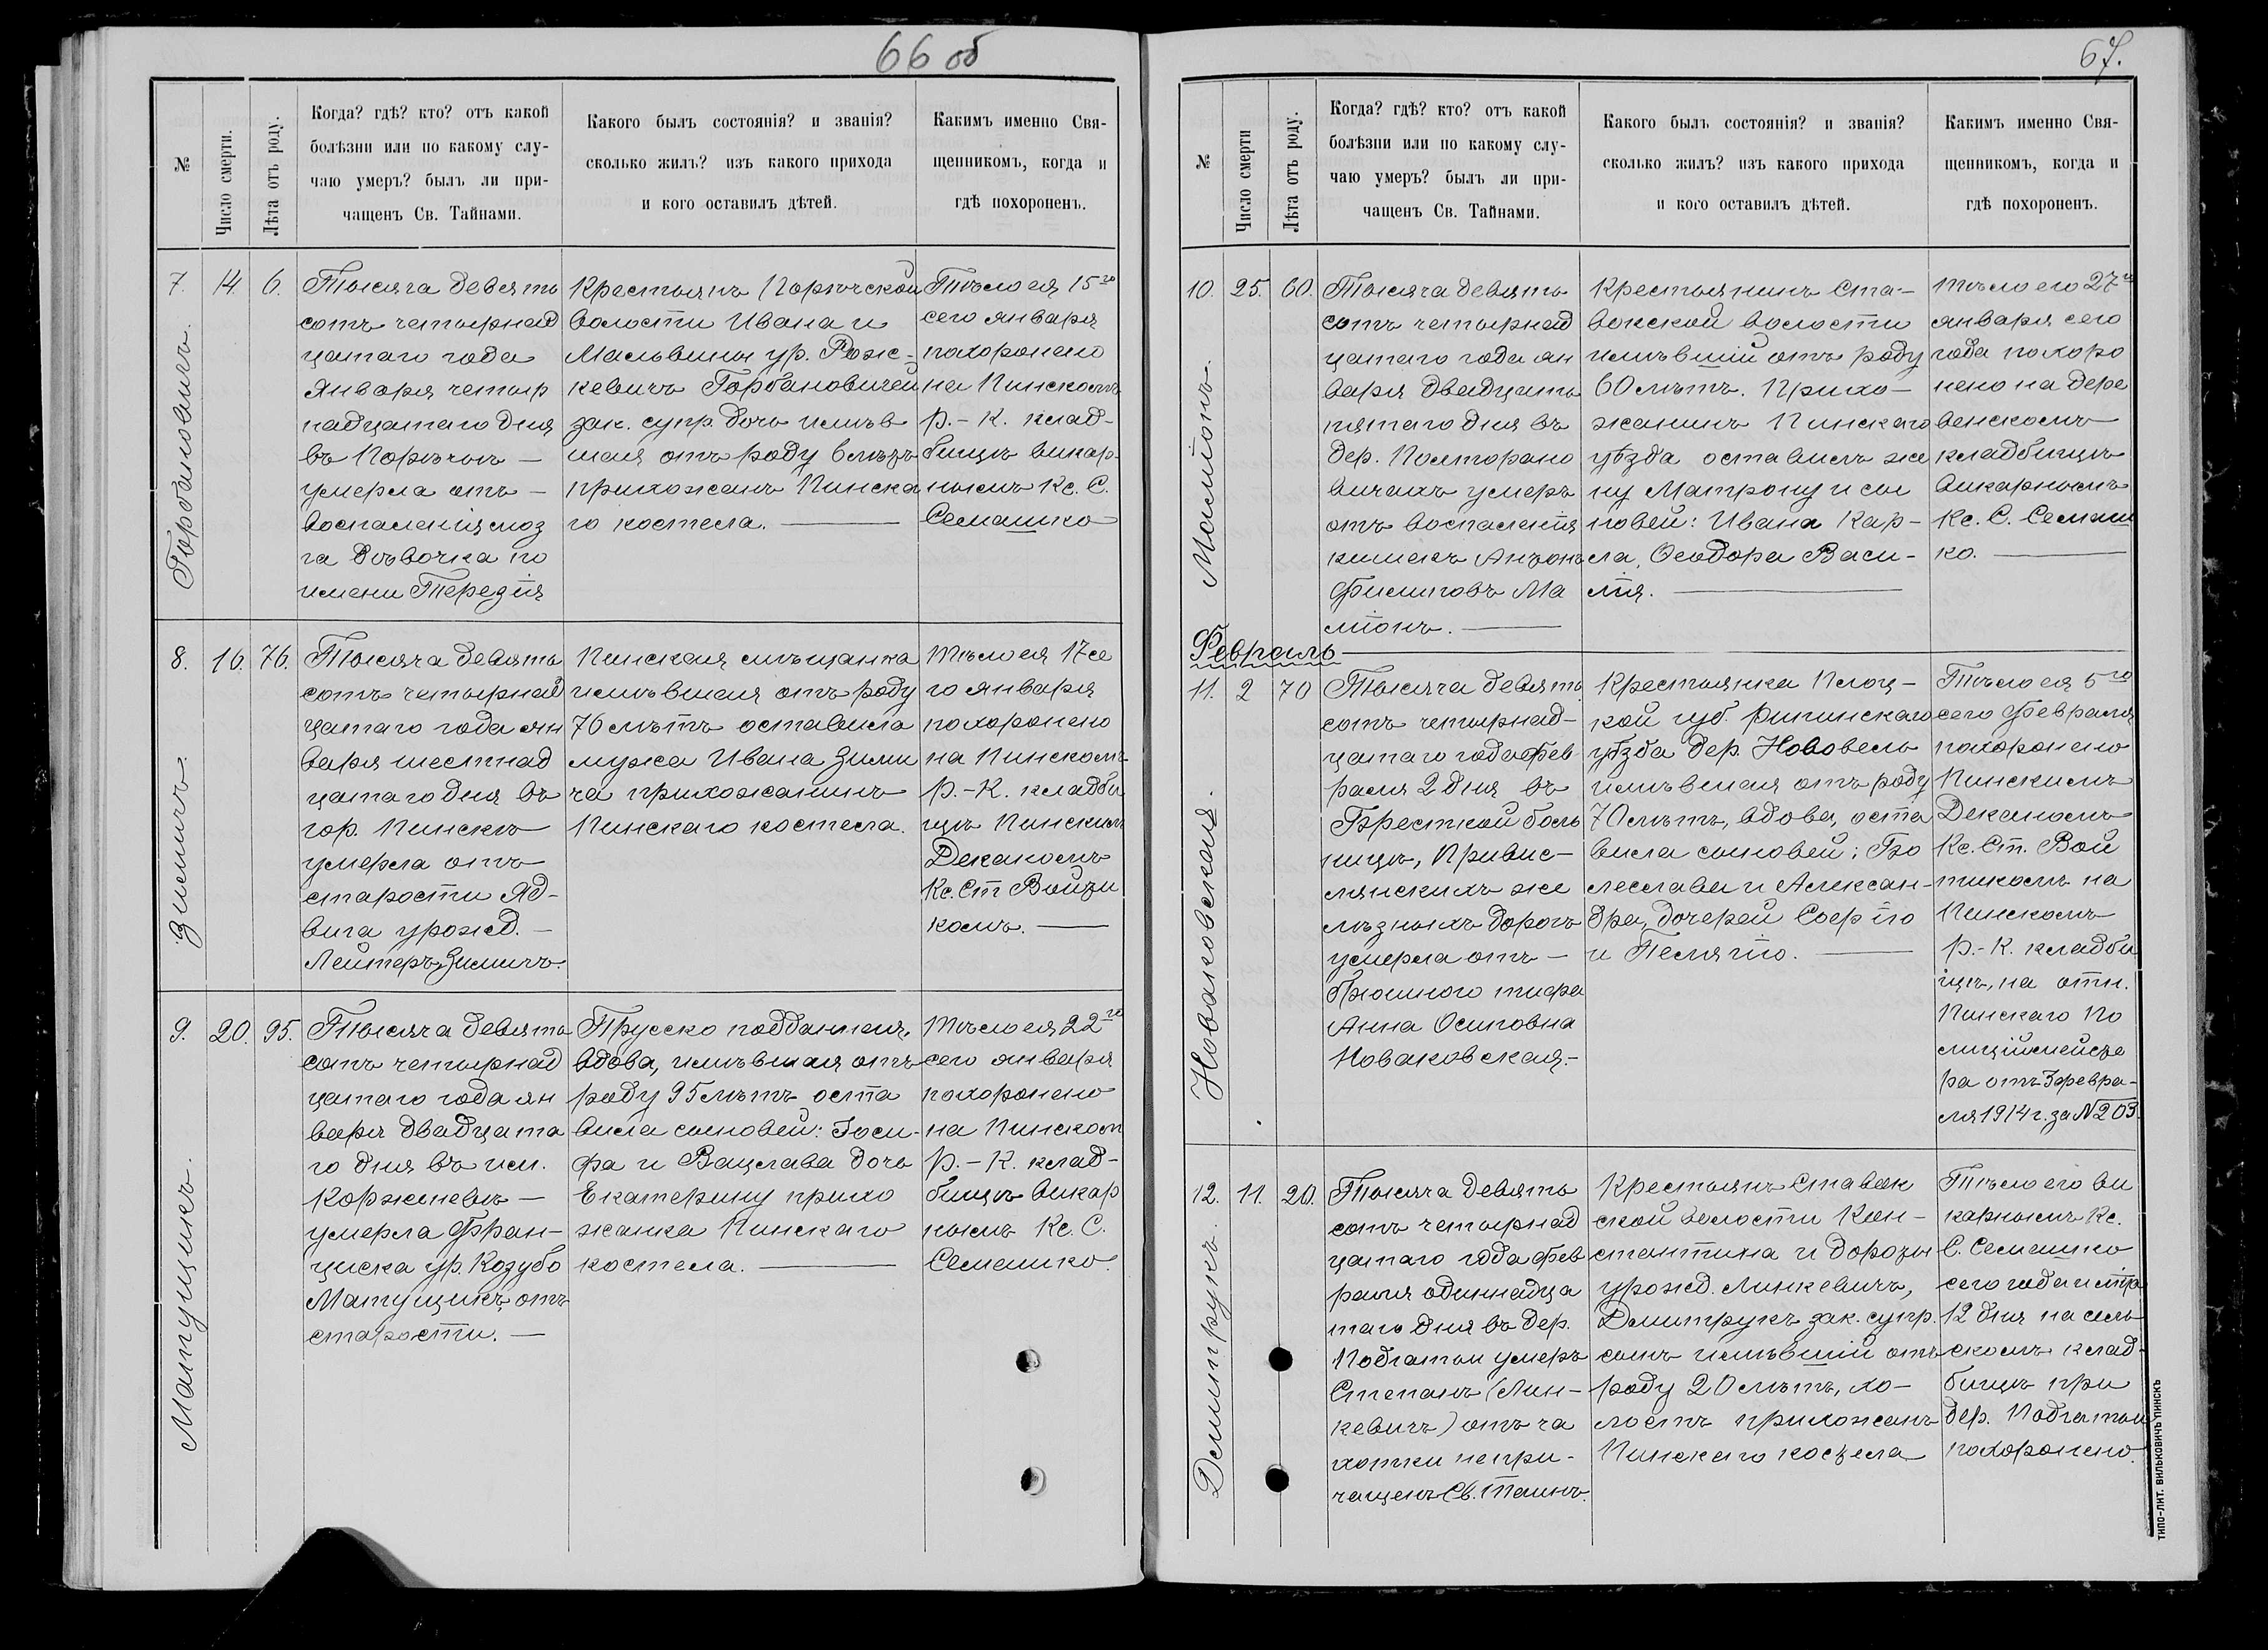 66 об
№
Число смерти.
Лѣта отъ роду.
Когда? гдѣ? кто? отъ какой
болѣзни или по какому слу-
чаю умеръ? былъ ли при-
чащенъ Св. Тайнами.
Какого былъ состоянія? и званія?
сколько жилъ? изъ какого прихода
и кого оставилъ дѣтей.
Какимъ именно Свя-
щенникомъ, когда и
гдѣ похороненъ.
7.
Горбановичъ.
14.
6.
Тысяча девять
сотъ четырнад
цатаго года
Января четыр
надцатаго дня
въ Порѣчьѣ —
умерла отъ —
воспаленія моз
га дѣвочка по
имени Терезія
Крестьянъ Порѣчской
волости Ивана и
Мальвины ур. Рожс-
кевичъ Горбановичей
зак. супр. дочь имѣв
шая отъ роду 6 лѣтъ
прихожанъ Пинска
го костела. —
Тѣло ея 15го
сего января
похоронено
на Пинскомъ
Р.-К. клад-
бищѣ викар-
нымъ Кс. С.
Семашко
8.
Зимичъ.
16.
76.
Тысяча девять
сотъ четырнад
цатаго года ян
варя шестнад
цатаго дня въ
гор. Пинскѣ
умерла отъ
старости Яд-
вига урожд. —
Лейтеръ, Зимичъ.
Пинская мѣщанка
имѣвшая отъ роду
76 лѣтъ оставила
мужа Ивана Зими
ча прихожанинъ
Пинскаго костела.
Тѣло ея 17 се
го января
похоронено
на Пинскомъ
Р.-К. кладби
щѣ Пинскимъ
Деканомъ
Кс. Ст Войзи
комъ. —
9.
Матущикъ.
20.
95.
Тысяча девять
сотъ четырнад
цатаго года ян
варя двадцата
го дня въ им.
Коржневѣ —
умерла Фран-
циска ур. Козубо
Матущикъ, отъ
старости. —
Прусско подданная,
вдова, имѣвшая отъ
роду 95 лѣтъ оста
вила сыновей: Іоси-
фа и Вацлава дочь
Екатерину прихо
жанка Пинскаго
костела. —
Тѣло ея 22го
сего января
похоронено
на Пинском
Р.-К. клад-
бищѣ викар
нымъ Кс. С.
Семашко.
67.
№
Число смерти
Лѣта отъ роду.
Когда? гдѣ? кто? отъ какой
болѣзни или по какому слу-
чаю умеръ? былъ ли при-
чащенъ Св. Тайнами.
Какого былъ состоянія? и званія?
сколько жилъ? изъ какого прихода
и кого оставилъ дѣтей.
Какимъ именно Свя-
щенникомъ, когда и
гдѣ похороненъ.
10.
25.
60.
Тысяча девять
сотъ четырнад
цатаго года ян
варя двадцать
пятаго дня въ
дер. Полторано
вичахъ умеръ
отъ воспаленія
кишекъ Антонъ
Филиповъ Ма
ліонъ. —
Крестьянинъ Ста-
вокской волости
имѣвшій отъ роду
60 лѣтъ. Прихо-
жанинъ Пинскаго
уѣзда оставилъ же
ну Матрону и сы
новей: Ивана Кар-
ла, Ѳеодора Васи-
лія. —
Тѣло его 27го
января сего
года похоро
нено на дере
венскомъ
кладбищѣ
викарнымъ
Кс. С. Семаш
ко. —
Февраль
11.
Новаковская.
2
70
Тысяча девять
сотъ четырнад-
цатаго года фев-
раля 2 дня въ
Брестской боль
ницѣ, Привис-
лянскихъ же
лѣзныхъ дорогъ
умерла отъ —
брюшного тифа
Анна Осиповна
Новаковская. —
Крестьянка Плоц-
кой губ. Рипинскаго
уѣзда дер. Нововесь
имѣвшая отъ роду
70 лѣтъ, вдова, оста
вила сыновей: Бо
леслава и Алексан-
дра, дочерей Софію
и Пелагію. —
Тѣло ея 5го
сего Февраля
похоронено
Пинскимъ
Деканомъ
Кс. Ст. Вой
тикомъ на
Пинскомъ
Р.-К. кладби
щѣ, на отн.
Пинскаго По
лиціймейсте
ра отъ 3 февра-
ля 1914 г. за N 203
12.
Демитрукъ.
11.
20.
Тысяча девять
сотъ четырнад
цатаго года фев
раля одиннадца
таго дня въ дер.
Подгатьи умеръ
Степанъ (Лин-
кевичъ) отъ ча
хотки непри-
чащенъ Св. Таинъ.
Крестьянъ Ставок
ской волости Кон-
стантина и Дорозы
урожд. Линкевичъ,
Демитрукъ зак. супр.
сынъ имѣвшій отъ
роду 20 лѣтъ, хо-
лостъ прихожанъ
Пинскаго костела
Тѣло его ви
карнымъ Кс.
С. Семашко
сего года и м-ца
12 дня на сель
скомъ клад-
бищѣ при
дер. Подгатьи
похоронено.
ТИПО-ЛИТ. ВИЛЬКОВИЧЪ ПИНСКЪ